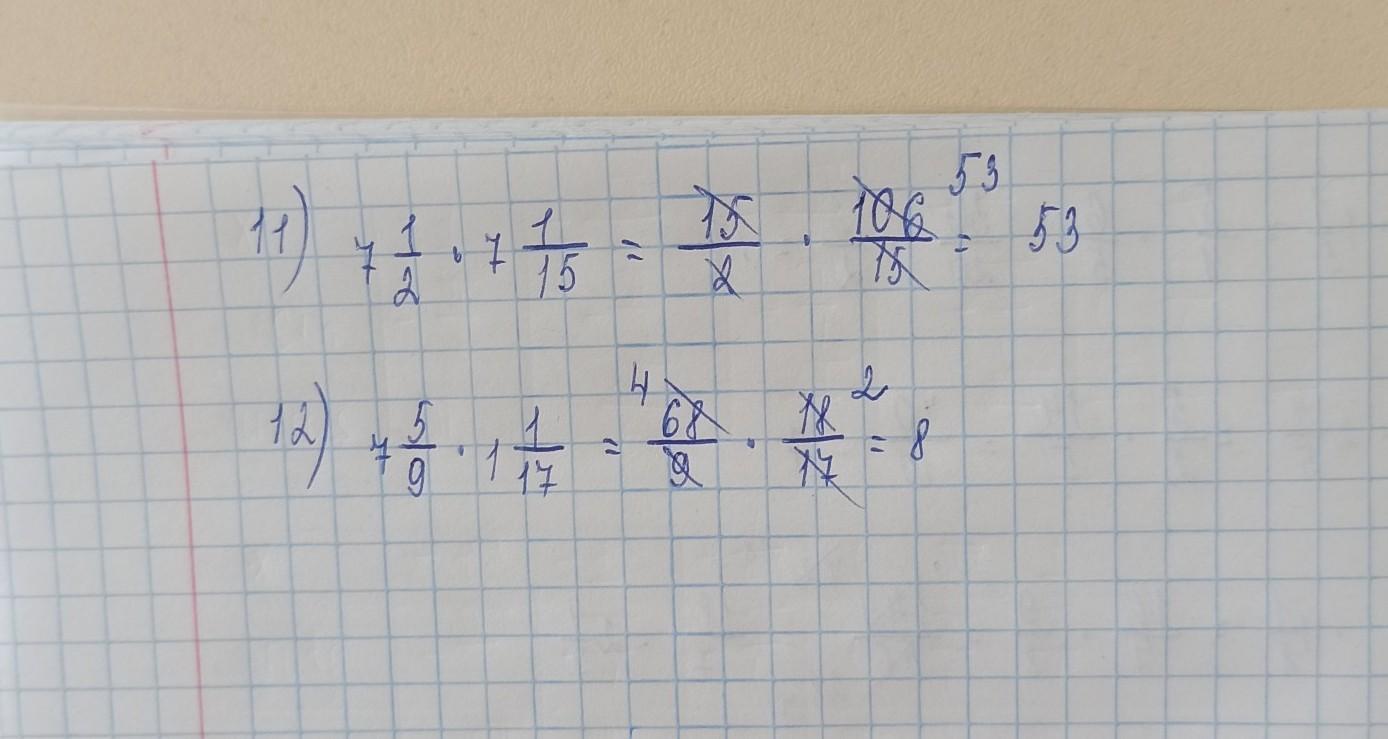 11) 7 1/2 · 7 1/15 = 15/2 · 106/15 53 = 53
12) 7 5/9 · 1 1/17 = 4 68/9 · 18/17 2 = 8